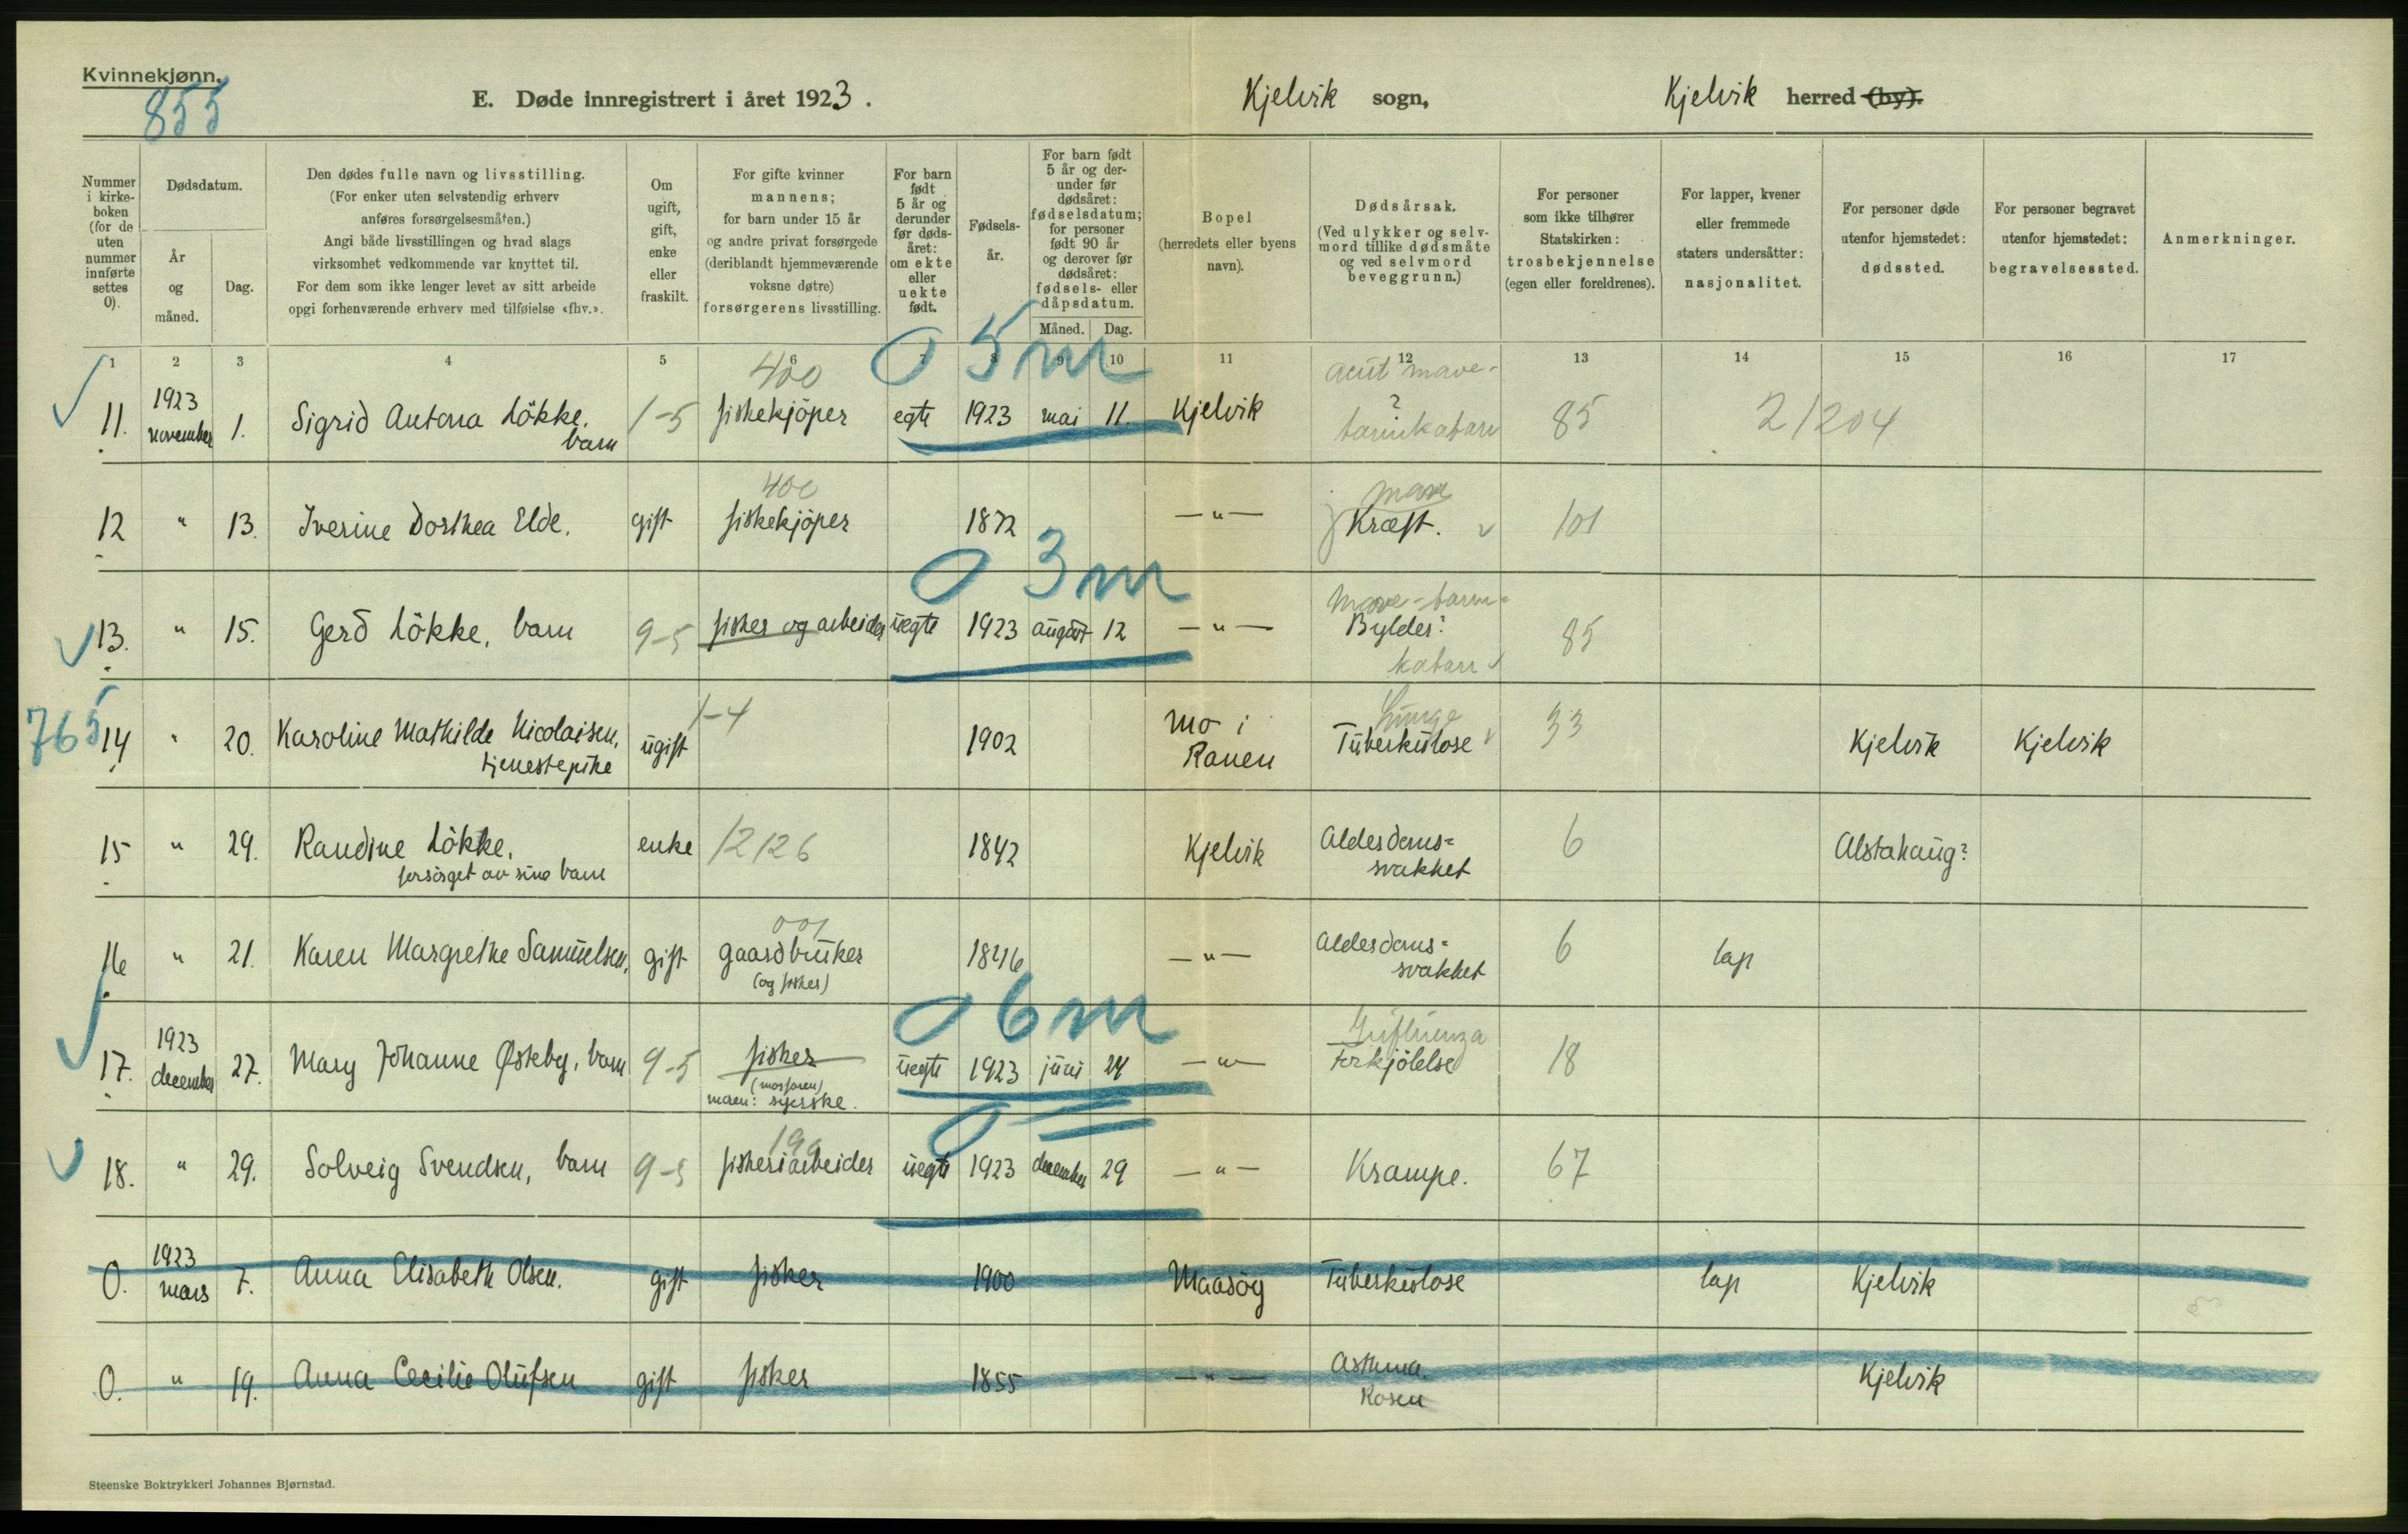 Kvinnekjønn.
855
E. Døde innregistrert i året 1923.
Kjelvik sogn,
Kjelvik herred (by).
Nummer i kirke-boken (for de uten nummer innførte settes 0).
Dødsdatum.
År og måned.
Dag.
Den dødes fulle navn og livsstilling.
(For enker uten selvstendig erhverv
anføres forsørgelsesmåten.)
Angi både livsstillingen og hvad slags
virksomhet vedkommende var knyttet til.
For dem som ikke lenger levet av sitt arbeide
opgi forhenværende erhverv med tilføielse «fhv.».
Om ugift, gift, enke eller fraskilt.
For gifte kvinner
mannens;
for barn under 15 år
og andre privat forsørgede
(deriblandt hjemmeværende
voksne døtre)
forsørgerens livsstilling.
For barn født 5 år og derunder før døds-året: om ekte eller uekte født.
Fødsels-år.
For barn født 5 år og der-under før dødsåret: fødselsdatum; for personer født 90 år og derover før dødsåret: fødsels- eller dåpsdatum.
Måned.
Dag.
Bopel
(herredets eller byens
navn).
Dødsårsak.
(Ved ulykker og selv-
mord tillike dødsmåte
og ved selvmord
beveggrunn.)
For personer
som ikke tilhører
Statskirken:
trosbekjennelse
(egen eller foreldrenes).
For lapper, kvener
eller fremmede
staters undersåtter:
nasjonalitet.
For personer døde
utenfor hjemstedet:
dødssted.
For personer begravet
utenfor hjemstedet:
begravelsessted.
Anmerkninger.
1 2 3 4 5 6 7 8 9 10 11 12 13 14 15 16 17
400 0 5 m acut mave-
11. 1923 november 1. Sigrid Antona Løkke. barn 1-5 fiskekjöper egte 1923 mai 11. Kjelvik ? tarmkatarr 85 2/204
400 mave
12 " 13. Iverine Dorthea Elde. gift fiskekjöper 1872 —"— Kræft. 101
0 3 m mave-tarm-
13. " 15. Gerd Løkke, barn 9-5 fisker og arbeider uegte 1923 august 12 —"— Bylder? 85
katarr
765 14 " 20. Karoline Mathilde Nicolaisen, tjenestepike ugift 1-4 1902 Mo i Ranen Lunge Tuberkulose 33 Kjelvik Kjelvik
15 " 29. Randine Løkke. forsörget av sine barn enke 12126 1842 Kjelvik Alderdoms=svakhet 6 Alstahaug?
001
16 " 21. Karen Margrethe Samuelsen, gift gaardbruker (og fisker) 1846 —"— Alderdoms=svakhet 6 lap
0 6 m Influenza
17. 1923 december 27. Mary Johanne Østeby, barn 9-5 fisker (morfaren) moren: syerske. uegte 1923 juni 24 —"— Forkjölelse 18
0
199
18. " 29. Solveig Svendsen, barn 9-5 fiskeriarbeider uegte 1923 december 29 —"— Krampe. 67
0. 1923 mars 7. Anna Elisabeth Olsen. gift fisker 1900 Maasöy Tuberkulose lap Kjelvik
0. " 19. Anna Cecilie Olufsen gift fisker 1855 —"— Asthma. Rosen Kjelvik
Steenske Boktrykkeri Johannes Bjørnstad.